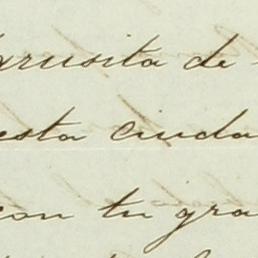 grusita de
esta ciuda
con tu gra